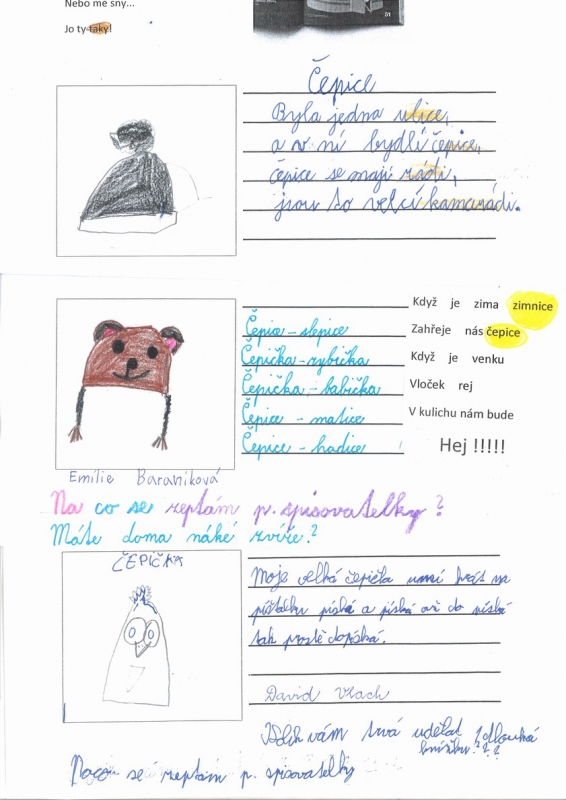 Nebo mé sny...
Jo ty taky!
31
Čepice
Byla jedna ulice,
a v ní bydlí čepice,
čepice se mají rádi,
jsou to velcí kamarádi.
Když je zima zimnice
Zahřeje nás čepice
Když je venku
Vloček rej
V kulichu nám bude
Hej !!!!!
Čepice - slepice
Čepička - rybička
Čepička - babička
Čepice - matice
Čepice - hadice
Emilie Baraníková
Na co se zeptám p. spisovatelky?
Máte doma náké zvíře?
ČEPIČKA
Moje velká čepička umí hrát na
píšťalku píská a píská až do
tak prostě dopíská.
David Vlach
Kolik vám trvá udělat 1 dlouhá
knížku???
Naco se zeptám p. spisovatelky